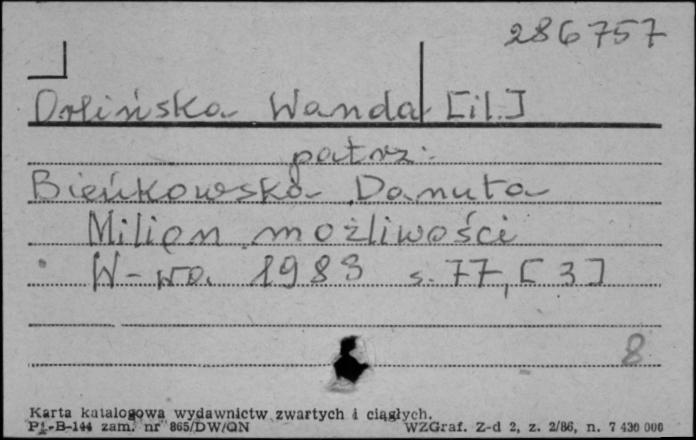 286757
Orlińska Wanda [il.]
patrz:
Bieńkowska Danuta
Milion możliwości
W-wa. 1983 s. 77, [3]
8
Karta katalogowa wydawnictw zwartych i ciągłych.
Pł-B-144 zam. nr 865/DW/QN WZGraf. Z-d 2, z. 2/86, n. 7 430 000